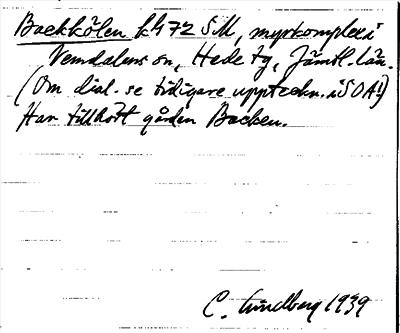 Backkölen kh 72 SM, myrkomplex i
Vemdalens sn, Hede tg, Jämtl. län.
(Om dial. se tidigare uppteckn. i SOA!)
Har tillhört gården Backen.
C. Lundberg 1939